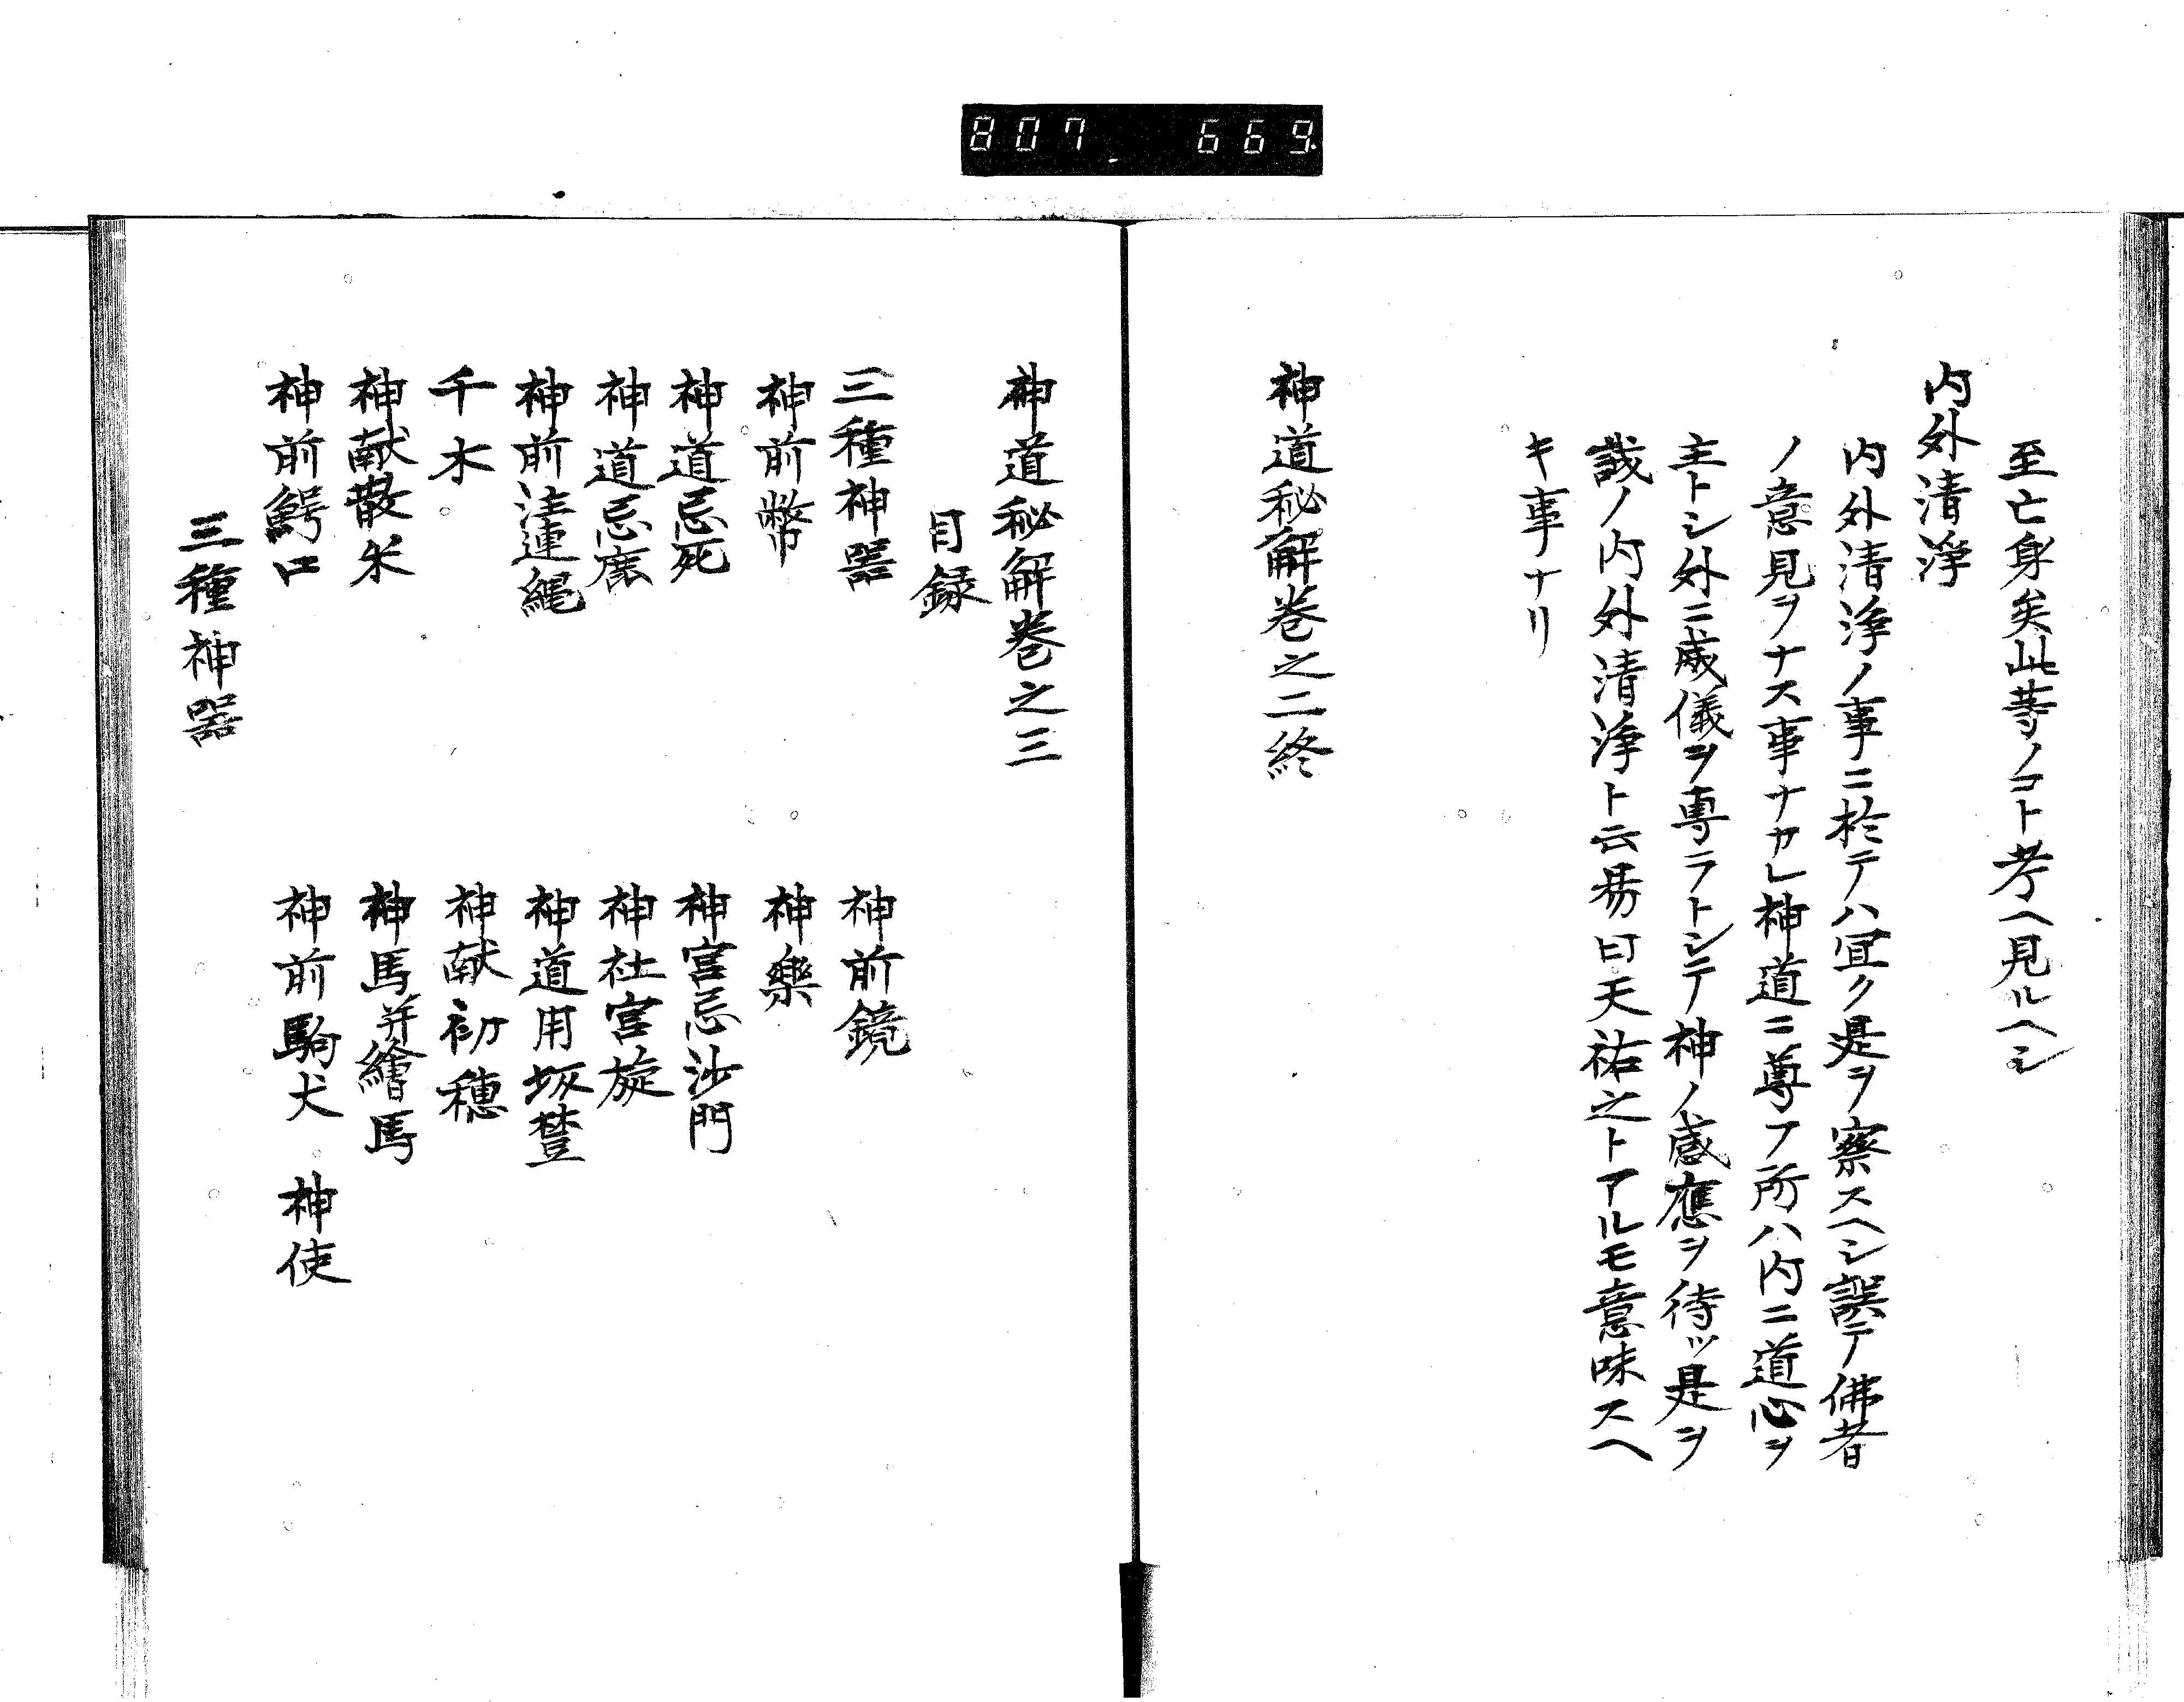 807 669
至亡身矣此等ノコト考ヘ見ルヘシ
内外清浄
内外清浄ノ事ニ於テハ宜ク是ヲ察スヘシ誤テ佛者
ノ意見ヲナス事ナカレ神道ニ尊フ所ハ内ニ道心ヲ
主トシ外ニ威儀ヲ専ラトシテ神ノ感應ヲ待ツ是ヲ
誠ノ内外清浄ト云易曰天祐之トアルモ意味スヘ
キ事ナリ
神道秘解巻之二終
神道秘解巻之三
目録
三種神器 神前鏡
神前幣 神樂
神道忌死 神宮忌沙門
神道忌穢 神社宮旋
神前注連縄 神道用坂埜
千木 神献初穂
神献散米 神馬并繪馬
神前鰐口 神前駒犬 神使
三種神器